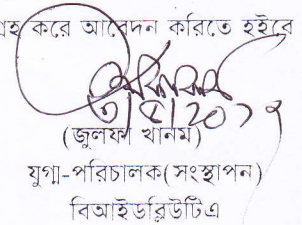 করে আবেদন করিতে হইবে
(জুলফা খানম)
যুগ্ম-পরিচালক(সংস্থাপন)
বিআইডব্লিউটিএ